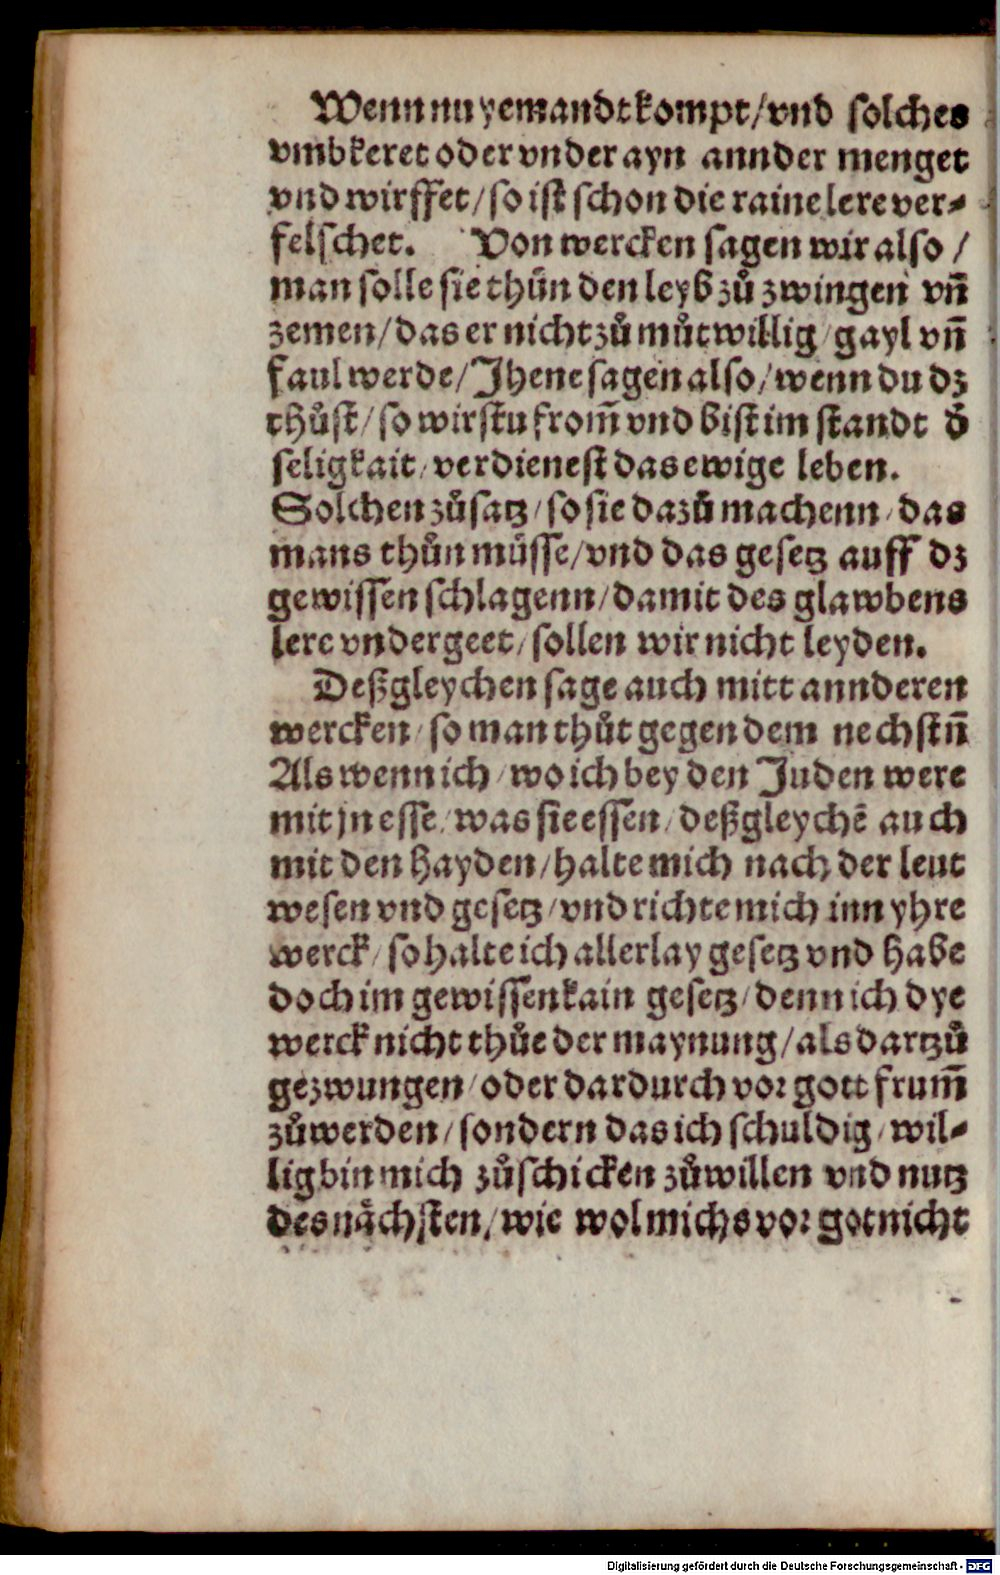 Wenn nu yemandt kompt/vnd solches
vmbkeret oder vnder ayn annder menget
vnd wirffet/so ist schon die raine lere ver-
felschet. Von wercken sagen wir also/
man solle sie thůn den leyb zů zwingen vn̄
zemen/das er nicht zů můtwillig/gayl vn̄
faul werde/Jhene sagen also/wenn du dz
thůst/so wirstu from̄ vnd bist im standt d̄
seligkait/verdienest das ewige leben.
Solchen zůsatz/so sie dazů machenn/das
mans thůn müsse/vnd das gesetz auff dz
gewissen schlagenn/damit des glawbens
lere vndergeet/sollen wir nicht leyden.
Deßgleychen sage auch mitt annderen
wercken/so man thůt gegen dem nechstn̄
Als wenn ich/wo ich bey den Juden were
mit jn esse/was sie essen/deßgleychē auch
mit den Hayden/halte mich nach der leut
wesen vnd gesetz/vnd richte mich inn yhre
werck/so halte ich allerlay gesetz vnd habe
doch im gewissen kain gesetz/denn ich dye
werck nicht thůe der maynung/als dartzů
gezwungen/oder dardurch vor gott frum̄
zůwerden/sondern das ich schuldig/wil-
lig bin mich zůschicken zůwillen vnd nutz
des nächsten/wie wol michs vor got nicht
Digitalisierung gefördert durch die Deutsche Forschungsgemeinschaft - DFG